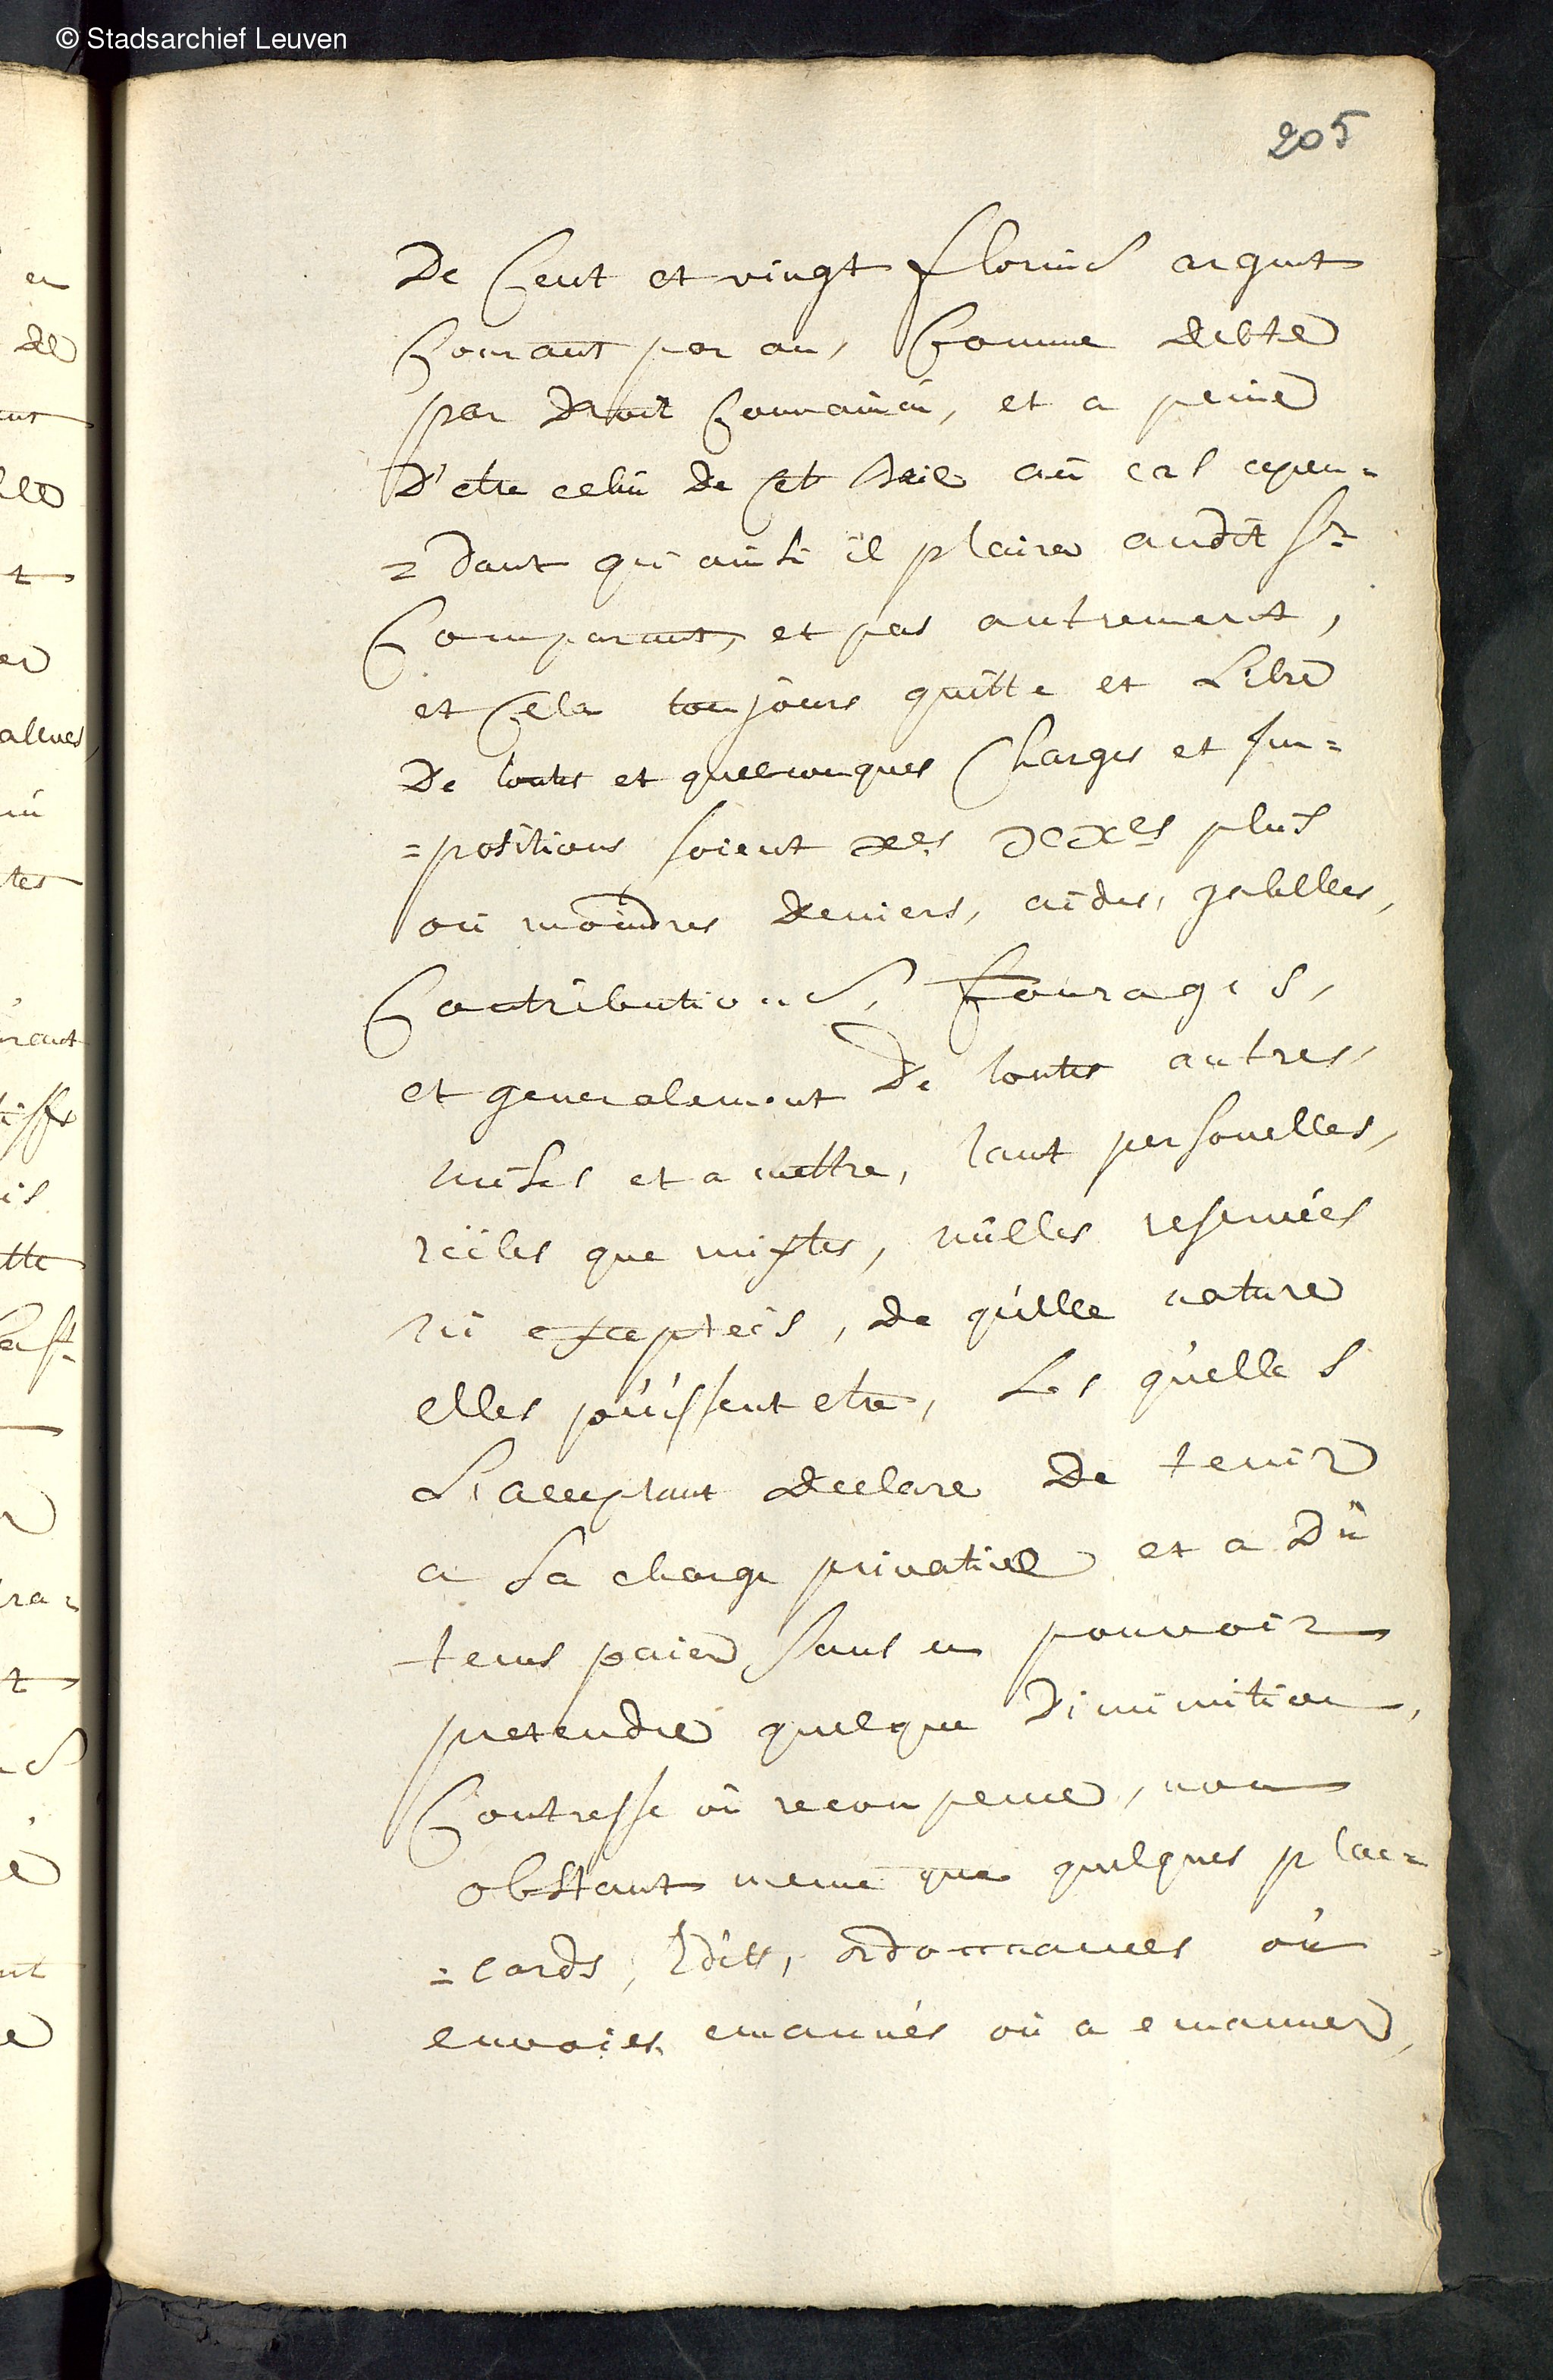 © Stadsarchief Leuven
205
De Cent et vingt florins argent
Courant par an, Comme debte
par droit Convaincû, et a peine
D'etre celuï de cet Bail aû cas cepen=
=dant qu'ainsi il plaira audit Sr
Comparant, et pas autrement,
et Cela toujours quitte et Libre
De toutes et quelconques Charges et Im=
=positions soient xes xxes plus
oû moindres deniers, aides, gabelles,
Contributions, Fourages,
et generalement De toutes autres,
mises et a mettre, tant personelles,
réeles que mixtes, nûlles reservées
nï exceptéés, de qûelle nature
elles pûissent etre, Les qûelles
L'acceptant declare De tenir
a sa charge privative et a Dû
tems paier sans en pouvoir
pretendre quelque Diminution,
Contresse oû recompence, non
obstant meme que quelques plac=
=cards, Edits, ordonnances oû
envoies emannés oû a emanner,